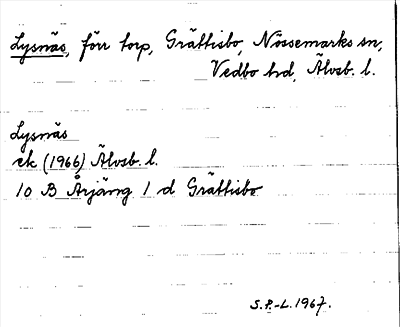 Lysnäs, förr torp, Grättisbo, Nössemarks sn,
Vedbo hd, Älvsb. l.
Lysnäs
ek (1966) Älvsb. l.
10 B Årjäng 1 d Grättisbo
S.P.-L. 1967.